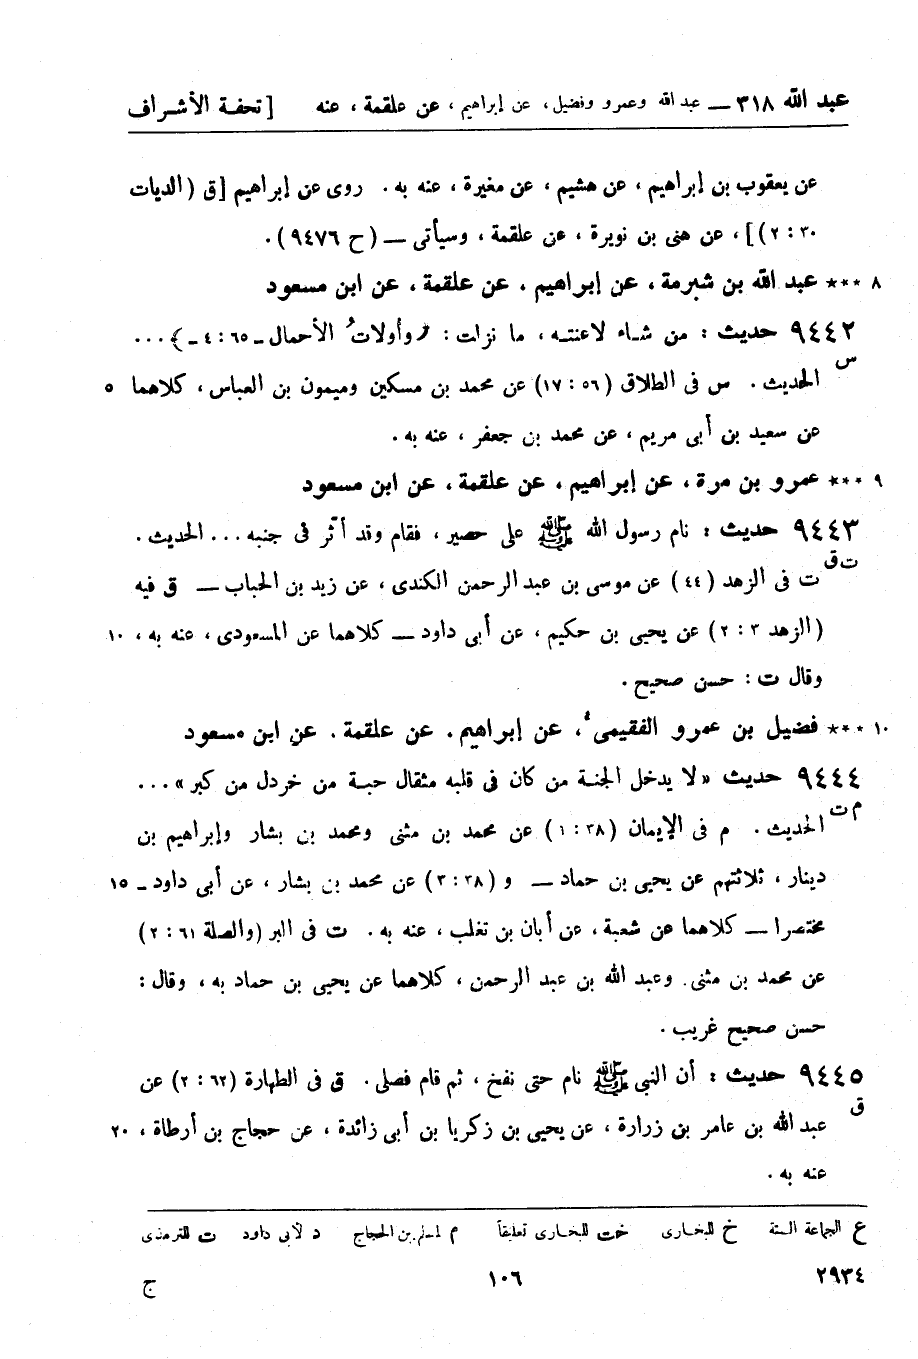 عبد الله ٣١٨ — عبد الله وعمرو وفضيل، عن إبراهيم، عن علقمة، عنه [تحفة الأشراف
عن يعقوب بن إبراهيم، عن هشيم، عن مغيرة، عنه به. روى عن إبراهيم [ق (الديات
٣٠ : ٢)]، عن هنى بن نويرة، عن علقمة، وسيأتى — (ح ٩٤٧٦).
٨ *** عبد الله بن شبرمة، عن إبراهيم، عن علقمة، عن ابن مسعود
٩٤٤٢ حديث : من شاء لاعنته، ما نزلت : ﴿وأولاتُ الأحمال ـ ٦٥ : ٤ ـ﴾ ...
س
الحديث. س فى الطلاق (٥٦ : ١٧) عن محمد بن مسكين وميمون بن العباس، كلاهما ٥
عن سعيد بن أبى مريم، عن محمد بن جعفر، عنه به.
٩ *** عمرو بن مرة، عن إبراهيم، عن علقمة، عن ابن مسعود
٩٤٤٣ حديث : نام رسول الله ﷺ على حصير، فقام وقد أثّر فى جنبه ... الحديث.
ت ق
ت فى الزهد (٤٤) عن موسى بن عبد الرحمن الكندى، عن زيد بن الحباب — ق فيه
(الزهد ٣ : ٢) عن يحيى بن حكيم، عن أبى داود — كلاهما عن المسعودى، عنه به، ١٠
وقال ت : حسن صحيح.
١٠ *** فضيل بن عمرو الفقيمى، عن إبراهيم. عن علقمة. عن ابن مسعود
٩٤٤٤ حديث «لا يدخل الجنة من كان فى قلبه مثقال حبة من خردل من كبر» ...
م ت
الحديث. م فى الإيمان (٣٨ : ١) عن محمد بن مثنى ومحمد بن بشار وإبراهيم بن
دينار، ثلاثتهم عن يحيى بن حماد — و (٣٨ : ٣) عن محمد بن بشار، عن أبى داود ـ ١٥
مختصرا — كلاهما عن شعبة، عن أبان بن تغلب، عنه به. ت فى البر (والصلة ٦١ : ٢)
عن محمد بن مثنى. وعبد الله بن عبد الرحمن، كلاهما عن يحيى بن حماد به، وقال :
حسن صحيح غريب.
٩٤٤٥ حديث : أن النبى ﷺ نام حتى نفخ، ثم قام فصلى. ق فى الطهارة (٦٢ : ٢) عن
ق
عبد الله بن عامر بن زرارة، عن يحيى بن زكريا بن أبى زائدة، عن حجاج بن أرطاة، ٢٠
عنه به.
ع الجماعة الستة خ للبخارى خت للبخارى تعليقاً م لمسلم بن الحجاج د لأبى داود ت للترمذى
٢٩٣٤ ١٠٦ ج